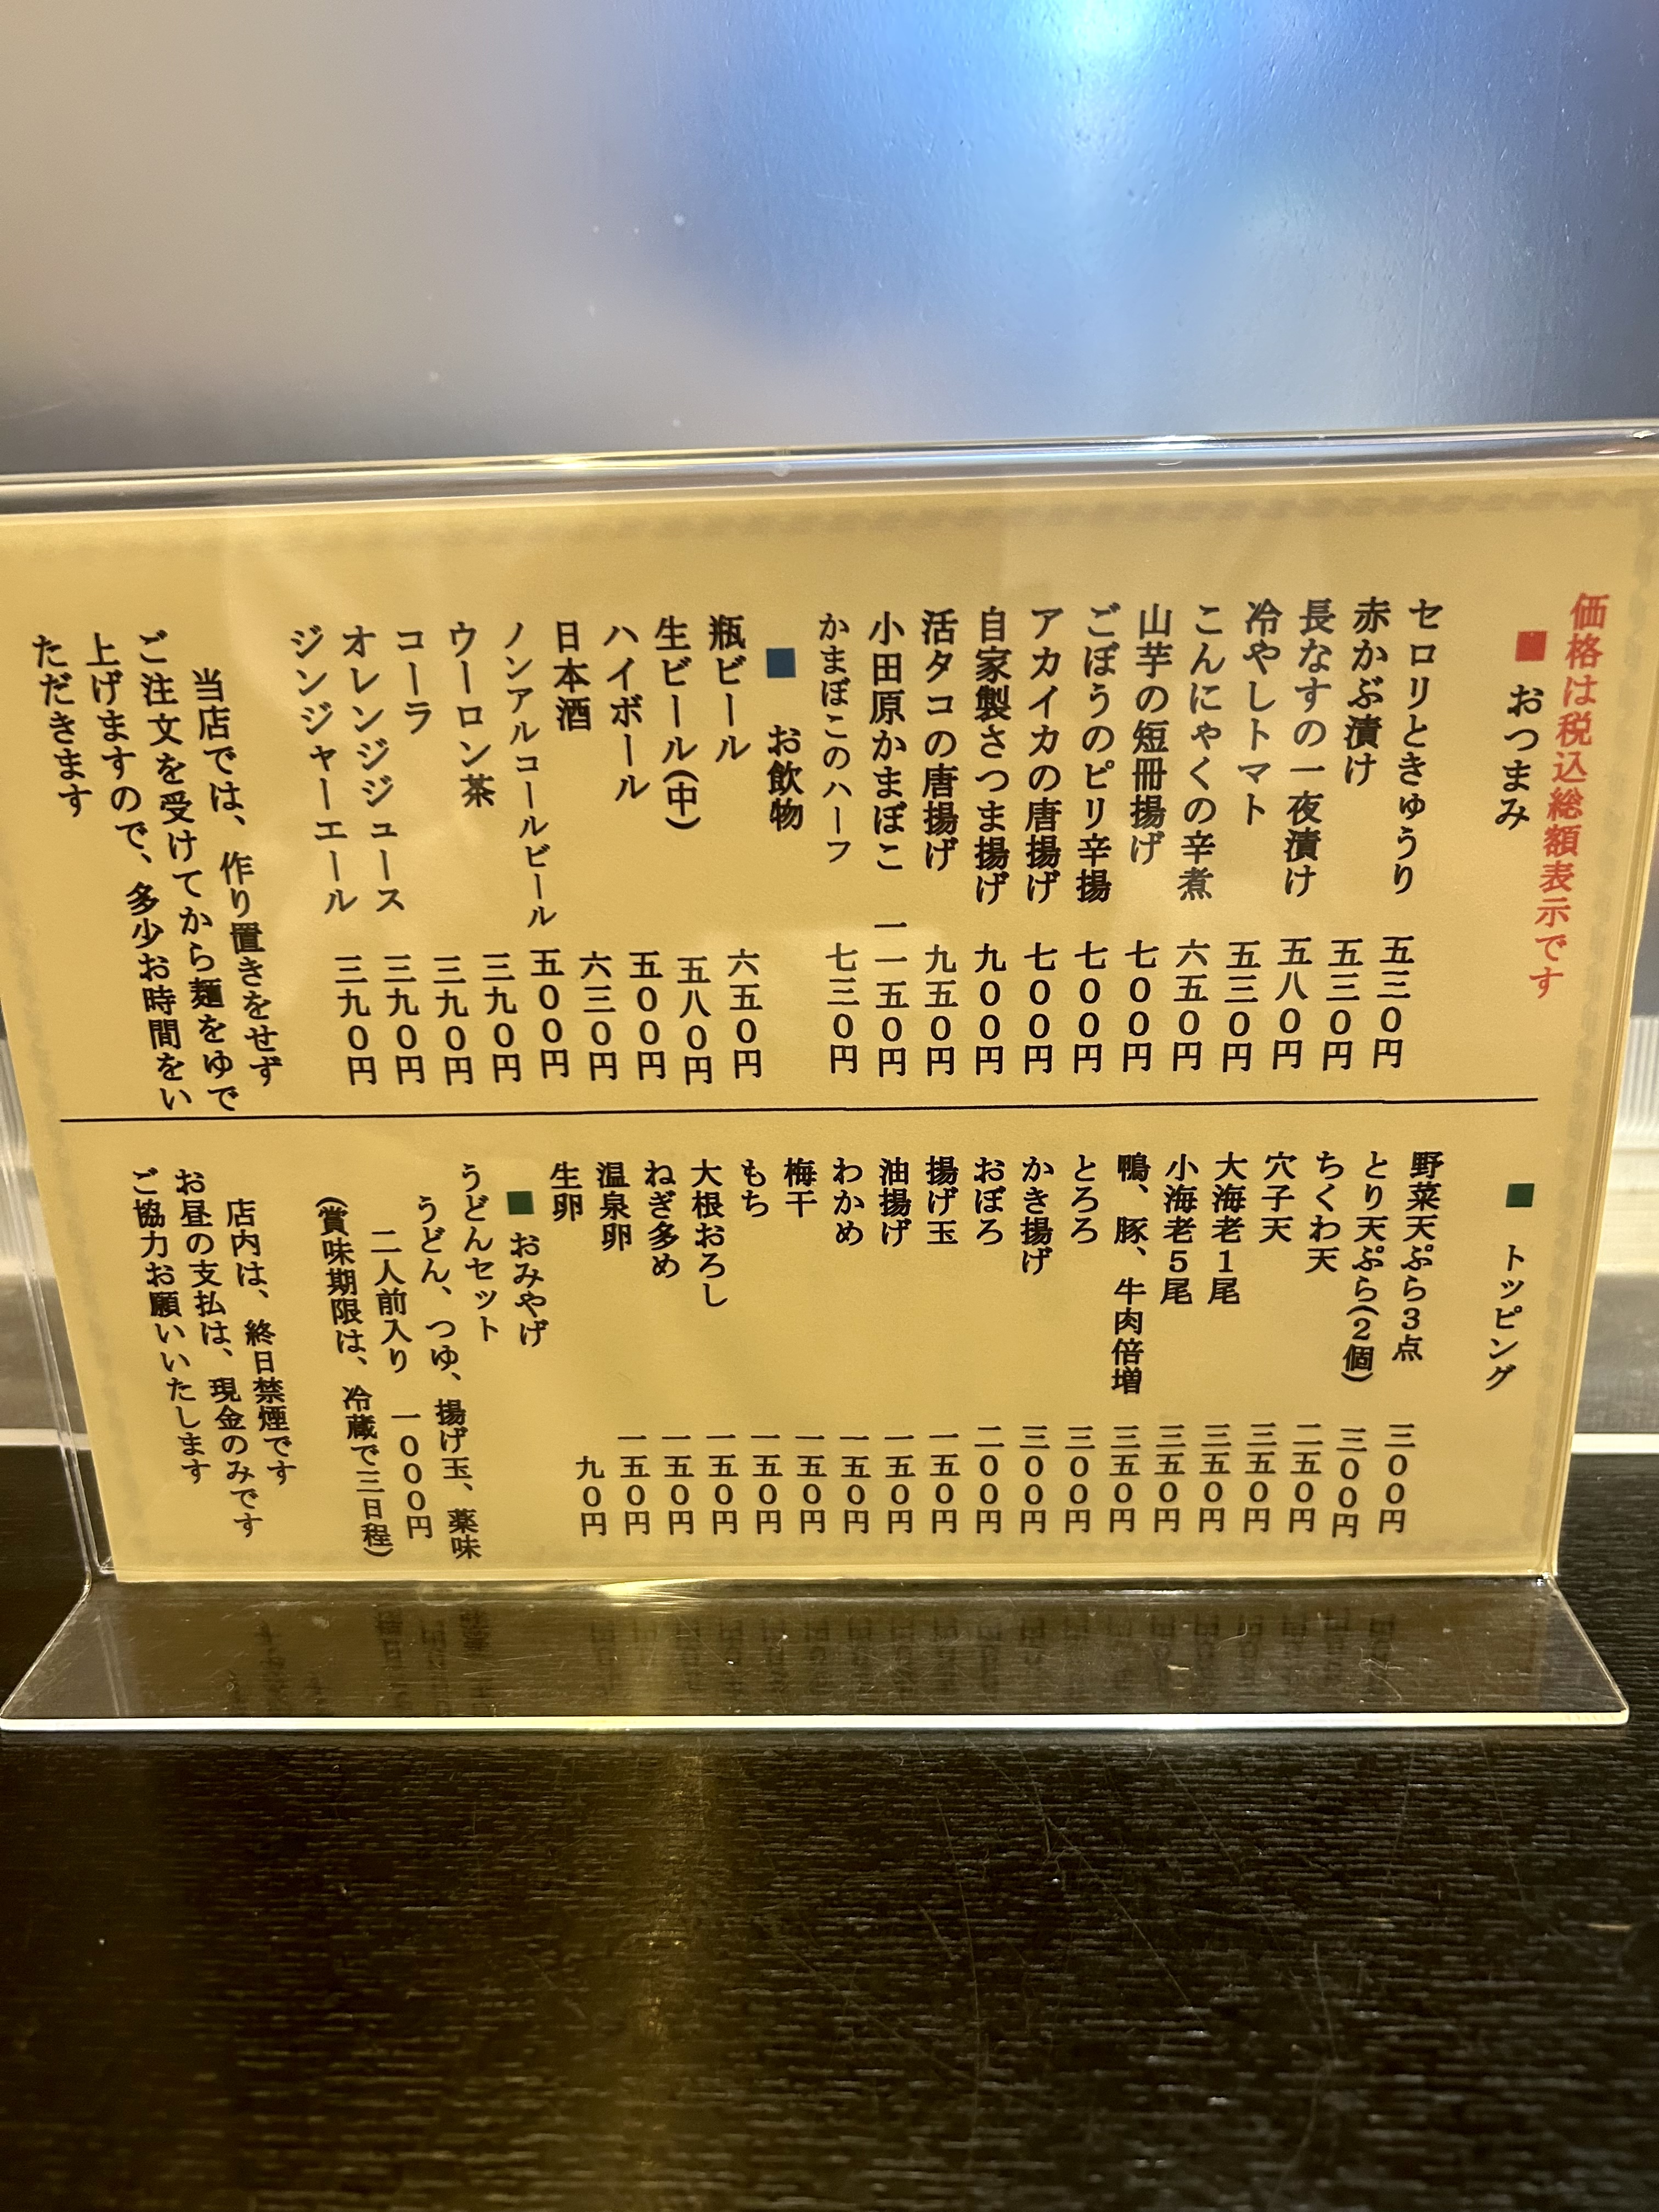 価格は税込総額表示です
■ おつまみ
セロリときゅうり 五三０円
赤かぶ漬け 五三０円
長なすの一夜漬け 五八０円
冷やしトマト 五三０円
こんにゃくの辛煮 六五０円
山芋の短冊揚げ 七００円
ごぼうのピリ辛揚 七００円
アカイカの唐揚げ 七００円
自家製さつま揚げ 九００円
活タコの唐揚げ 九五０円
小田原かまぼこ 一一五０円
かまぼこのハーフ 七三０円
■ お飲物
瓶ビール 六五０円
生ビール(中) 五八０円
ハイボール 五００円
日本酒 六三０円
ノンアルコールビール 五００円
ウーロン茶 三九０円
コーラ 三九０円
オレンジジュース 三九０円
ジンジャーエール 三九０円
当店では、作り置きをせず
ご注文を受けてから麺をゆで
上げますので、多少お時間をい
ただきます
■ トッピング
野菜天ぷら３点 三００円
とり天ぷら(２個) 三００円
ちくわ天 二五０円
穴子天 三五０円
大海老１尾 三五０円
小海老５尾 三五０円
鴨、豚、牛肉倍増 三五０円
とろろ 三００円
かき揚げ 三００円
おぼろ 二００円
揚げ玉 一五０円
油揚げ 一五０円
わかめ 一五０円
梅干 一五０円
もち 一五０円
大根おろし 一五０円
ねぎ多め 一五０円
温泉卵 一五０円
生卵 九０円
■ おみやげ
うどんセット
うどん、つゆ、揚げ玉、薬味
二人前入り 一０００円
(賞味期限は、冷蔵で三日程)
店内は、終日禁煙です
お昼の支払は、現金のみです
ご協力お願いいたします